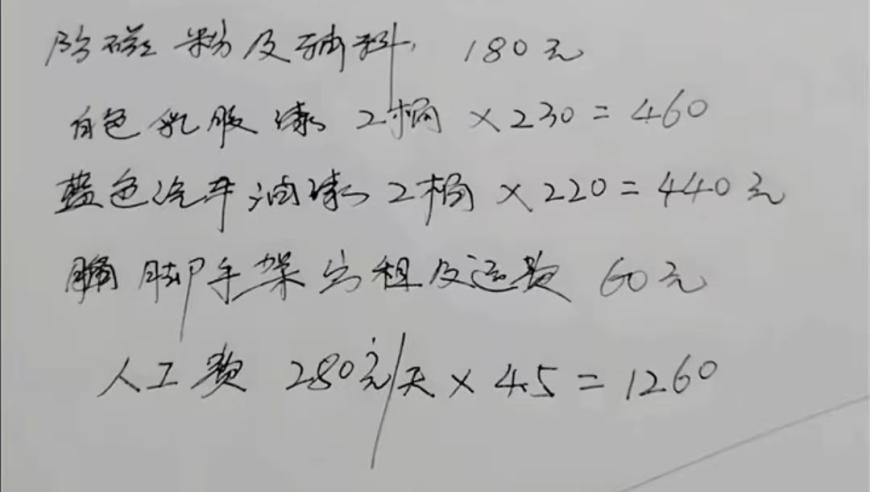 防磁粉及辅料, 180元
白色乳胶漆 2桶 ×230=460
蓝色汽车油漆 2桶 ×220=440元
脚手架出租及运费 60元
人工费 280元/天×4.5=1260